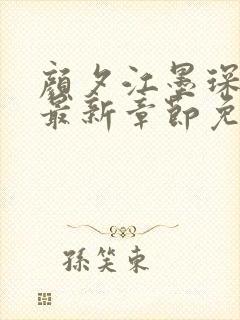 顔夕江墨琛
最新章節免
孫笑東